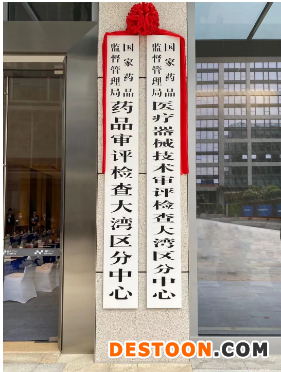 国家药品
监督管理局
医疗器械技术审评检查大湾区分中心
国家药品
监督管理局
药品审评检查大湾区分中心
DESTOON.COM